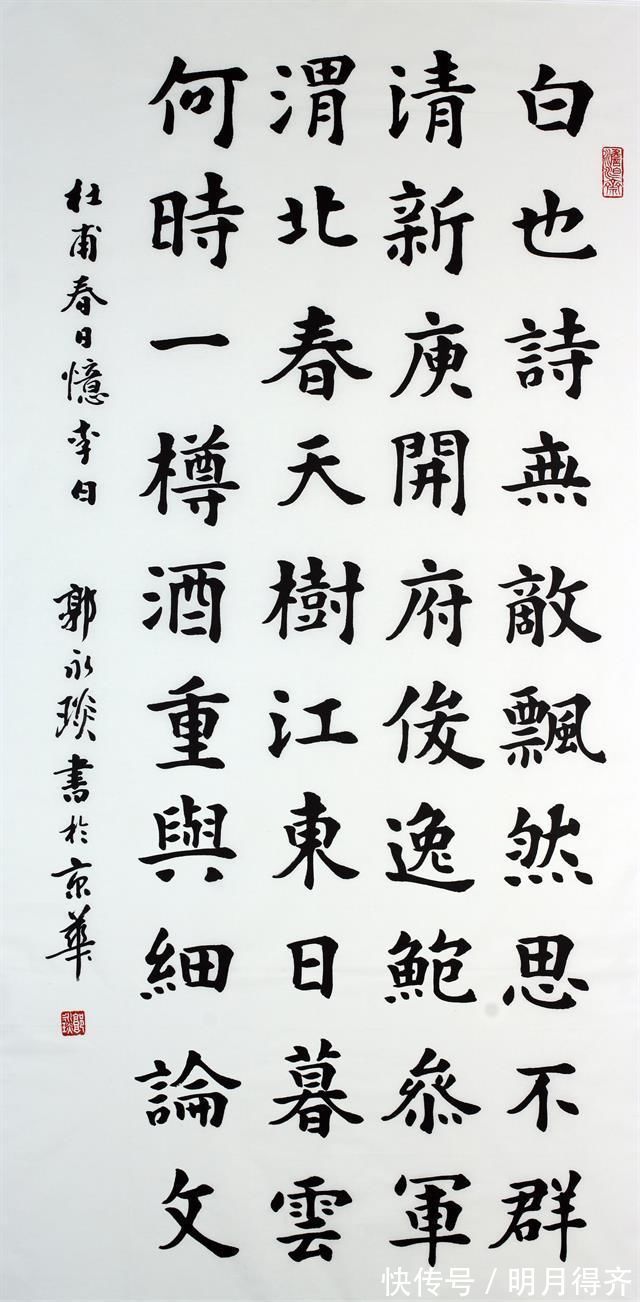 白也詩無敵飄然思不群
清新庾開府俊逸鮑參軍
渭北春天樹江東日暮雲
何時一樽酒重與細論文
杜甫春日憶李白 郭永琰書於京華
快传号/明月得齐